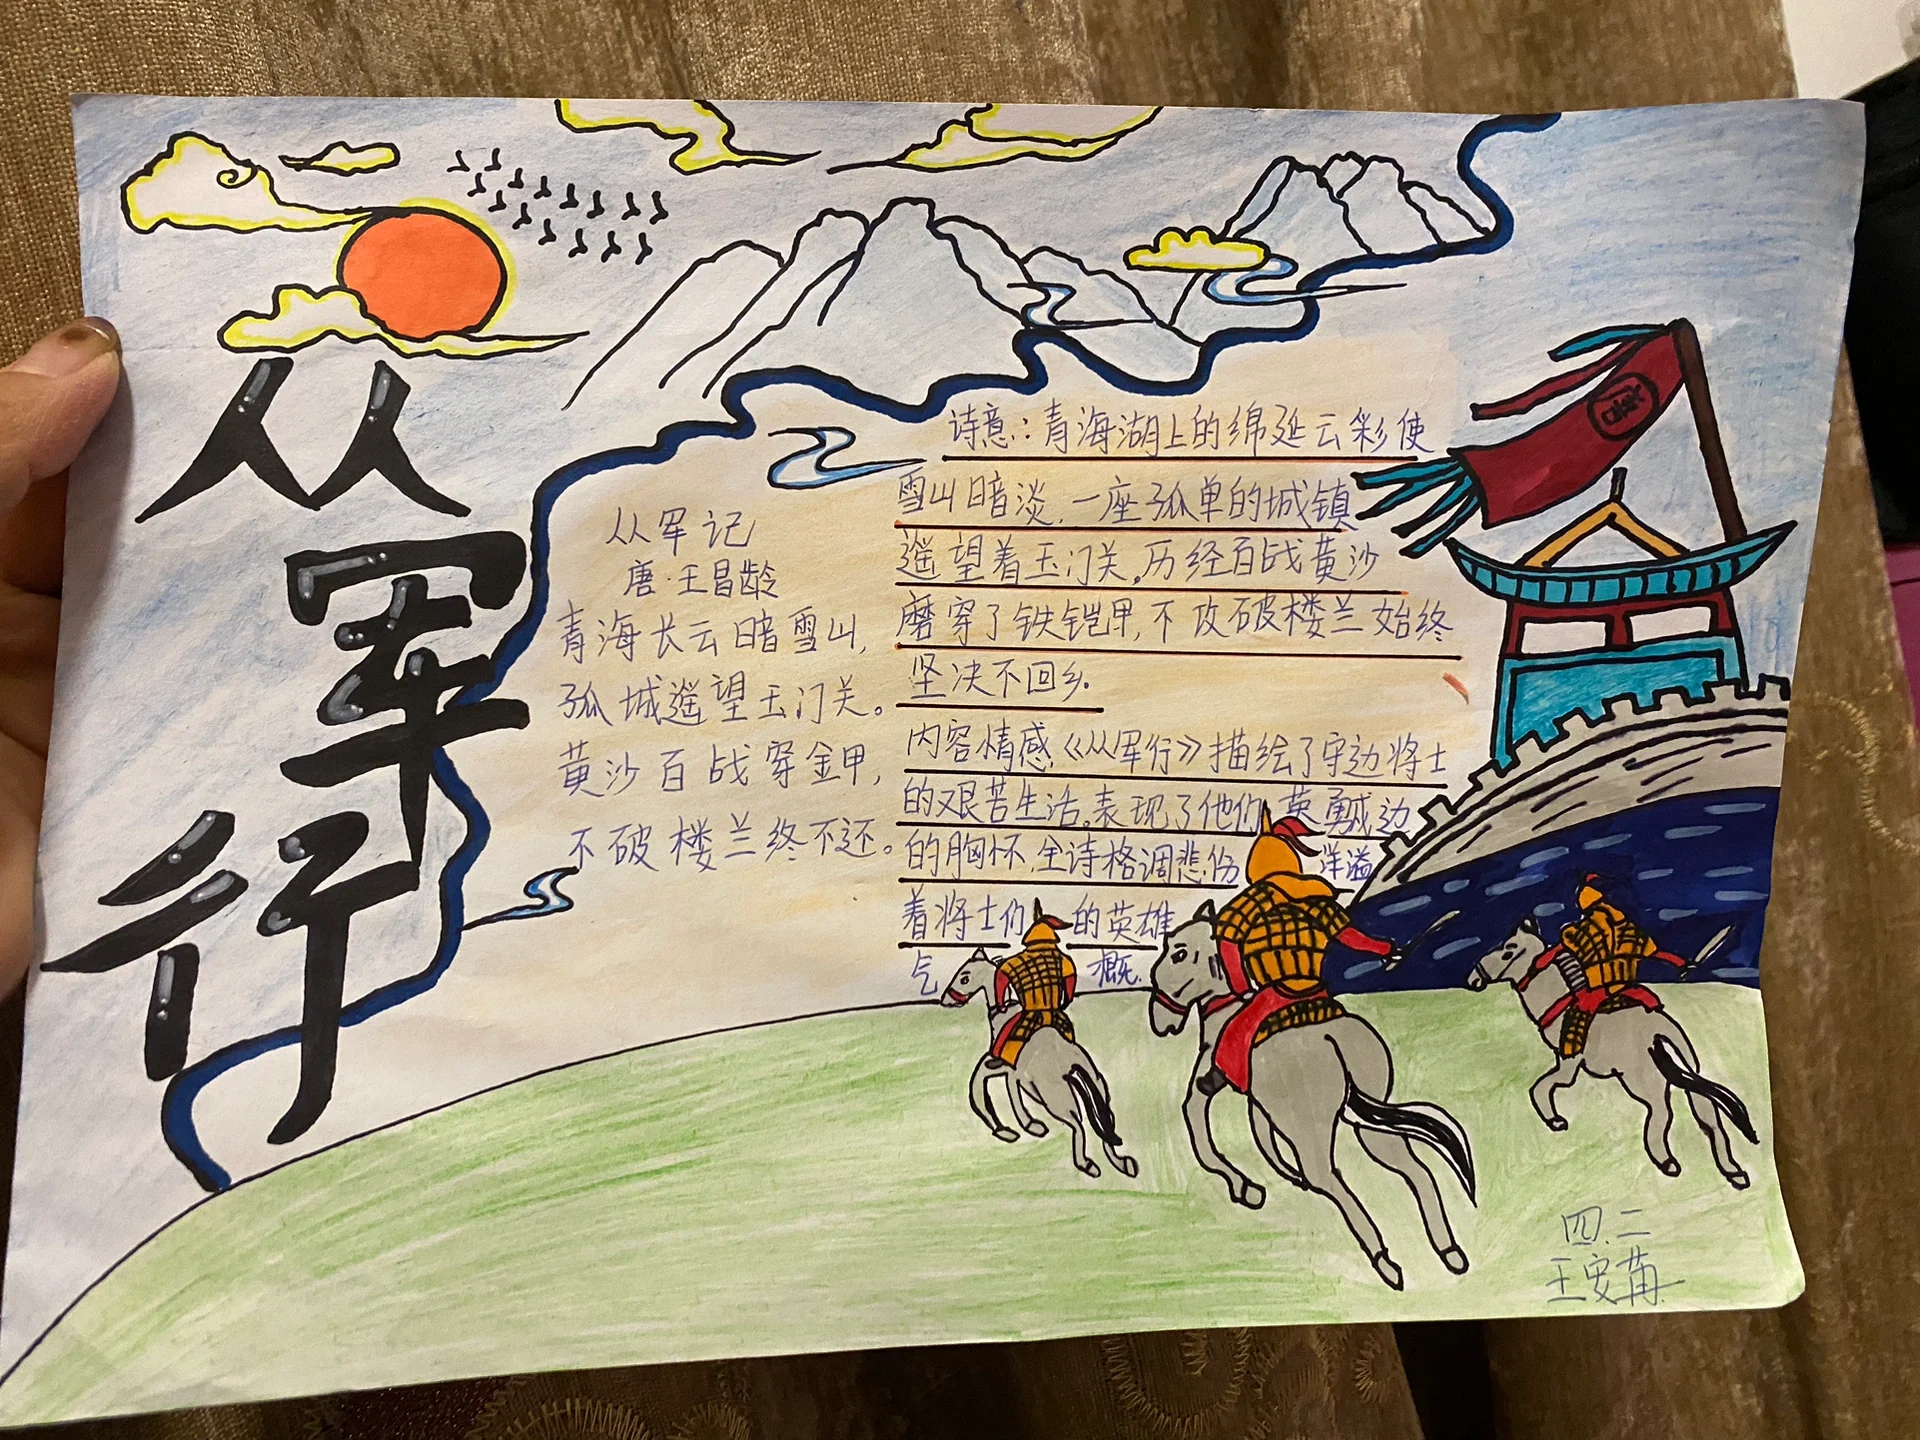 从军行
从军记
唐·王昌龄
青海长云暗雪山，
孤城遥望玉门关。
黄沙百战穿金甲，
不破楼兰终不还。
诗意：青海湖上的绵延云彩使
雪山暗淡，一座孤单的城镇
遥望着玉门关。历经百战黄沙
磨穿了铁铠甲，不攻破楼兰始终
坚决不回乡.
内容情感《从军行》描绘了守边将士
的艰苦生活。表现了他们英勇戍边
的胸怀，全诗格调悲伤 洋溢
着将士们的英雄
气概.
四.二
王安